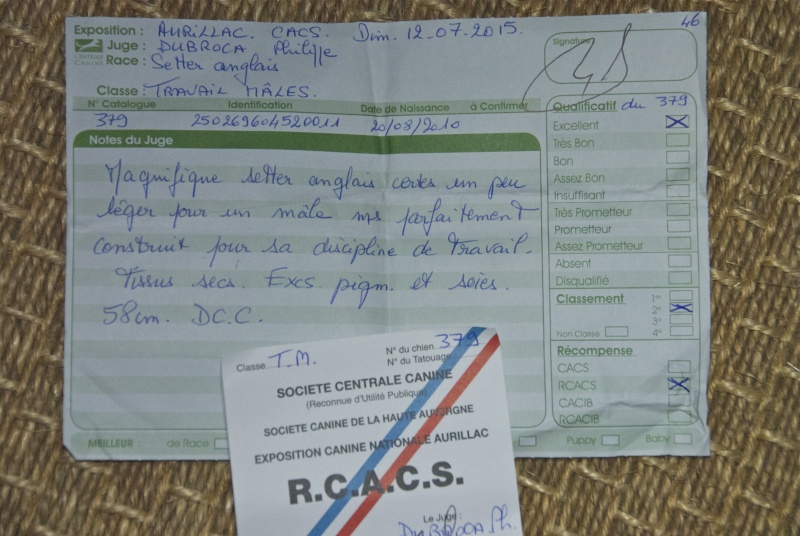 46
Exposition : AURILLAC. CACS. Dim. 12-07-2015.
Juge : DUBROCA Philippe
Race : Setter anglais
CENTRALE CANINE
Signature
Classe : TRAVAIL MÂLES.
N° Catalogue Identification Date de Naissance à Confirmer
379 250269604520011 20/08/2010
Notes du Juge
Magnifique setter anglais certes un peu
léger pour un mâle ms parfaitement
construit pour sa discipline de travail.
Tissus secs. Excs pigm. et soies.
58cm. DC.C.
Qualificatif du 379
Excellent X
Très Bon
Bon
Assez Bon
Insuffisant
Très Prometteur
Prometteur
Assez Prometteur
Absent
Disqualifié
Classement 1°
2° X
3°
Non Classé 4°
Récompense
CACS
RCACS X
CACIB
RCACIB
MEILLEUR : de Race Puppy Baby
Classe T.M. N° du chien 379
N° du Tatouage
SOCIETE CENTRALE CANINE
(Reconnue d'Utilité Publique)
SOCIETE CANINE DE LA HAUTE AUVERGNE
EXPOSITION CANINE NATIONALE AURILLAC
R.C.A.C.S.
Le Juge :
DUBROCA Ph.